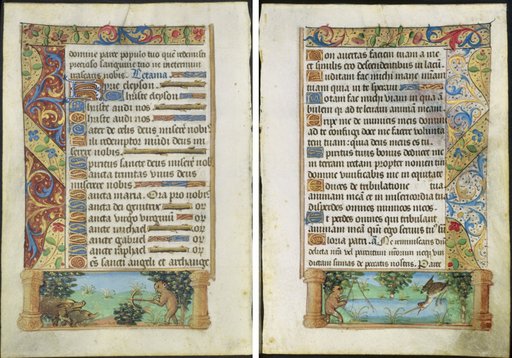 domine parce populo tuo quē redemisti
precioso sanguine tuo ne in eternum
irascaris nobis. Letania.
Kyrie eleyson.
Christe eleyson.
Christe audi nos
Christe audi nos
Pater de celis deus miserē nobis
Fili redemptor mūdi deus mi
serere nobis.
Spiritus sancte deus miserē nobis
Sancta trinitas vnus deus
miserere nobis
Sancta maria. Ora pro nobis.
Sancta dei genitrix or
Sancta virgo virginū or
Sancte michael or
Sancte gabriel or
Sancte raphael or
Oēs sancti angeli et archange
Non auertas faciem tuam a me
et similis ero descendentibus in lacū.
Auditam fac michi mane miam
tuam quia in te speraui
Notam fac michi viam in qua ā
bulem q̄ ad te leuaui animā meam.
Eripe me de inimicis meis domine
ad te confugi doce me facere volunta
tem tuam: quia deus meus es tu.
Spiritus tuus bonus deducet me
in terram rectam propter nomen tuū
domine viuificabis me in equitate
Educes de tribulatione tua
animam meā et in misericordia tua
disperdes omnes inimicos meos.
Et perdes omnes qui tribulant
animam meā qm̄ ego seruus tuꝰ sū
Gloria patri. a. Ne reminiscaris dn̄e
delicta nr̄a vel parentum nr̄orum neqꝫ vin
dictam sumas de peccatis nostris. Parce